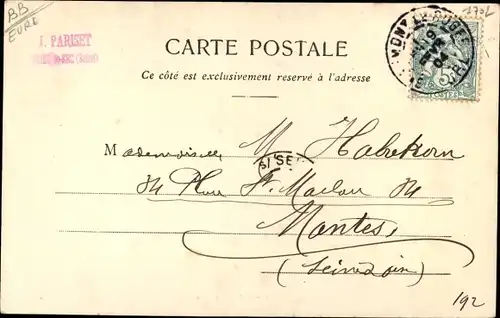 BB
EURE
J. PARISET
1701
CARTE POSTALE
Ce côté est exclusivement reservé à l'adresse
5
POSTES
M ademoiselle M Habrekorn
S/SE
84 Place St Maclou 84
Mantes
(Seine & Oise)
192